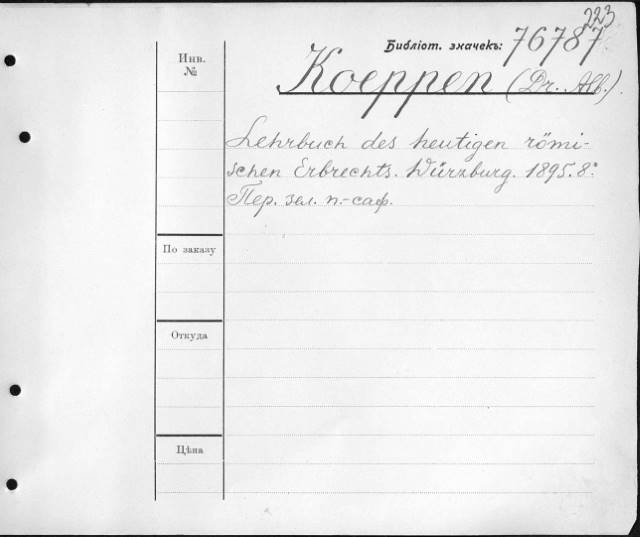 223
Библіот. значекъ: 76787
Инв.
№
Koeppen (Dr. Alb.).
Lehrbuch des heutigen römi-
schen Erbrechts. Würzburg. 1895. 8º.
Пер. зел. п.-саф.
По заказу
Откуда
Цѣна